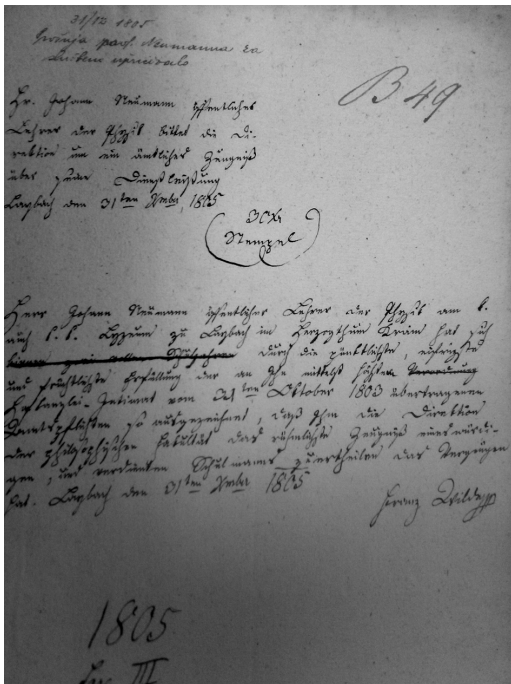 31/12 1805
prof. Neumanna za
B 49
Hr. Johann Neumann öffentlicher
Lehrer der Physik bittet die Di-
rektion um ein ämtliches Zeugniß
über seine Dienstleistung
Laybach den 31ten Xmbr, 1805
30Xr
Stempel
Herr Johann Neumann öffentlicher Lehrer der Physik am k.
auch k. k. Lyzeum zu Laybach im Herzogthum Krain hat sich
durch die pünktlichste eifrigste
und Erfüllung der an Ihn mittelst höchsten Verordnung
Hofkanzlei-Intimat vom ten Oktober 1803 übertragenen
Amtspflichten so ausgezeichnet, daß Ihm die Direktion
der philosophischen Fakultät das rühmlichste Zeugniß eines würdi-
gen, und verdienten Schulmanns zu ertheilen das Vergnügen
hat. Laybach den 31ten Xmbr 1805
Franz Wilde
1805
III